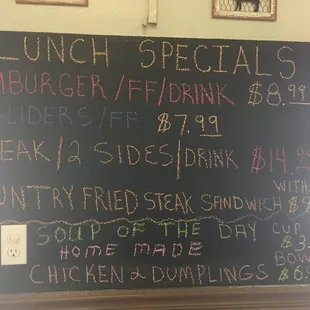 LUNCH SPECIALS
MBURGER/FF/DRINK $8.99
SLIDERS/FF $7.99
EAK/2 SIDES/DRINK $14.9
WITH
UNTRY FRIED STEAK SANDWICH $9
SOUP OF THE DAY CUP $3.
HOME MADE BOW
CHICKEN 2 DUMPLINGS $6.